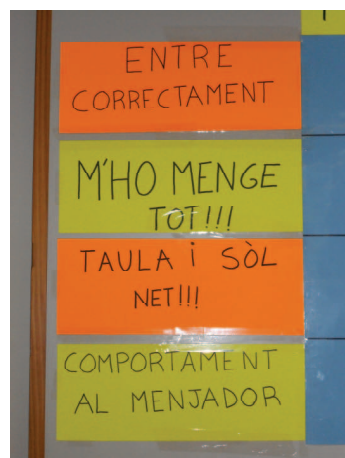 ENTRE
CORRECTAMENT
M'HO MENGE
TOT!!!
TAULA i SÒL
NET!!!
COMPORTAMENT
AL MENJADOR